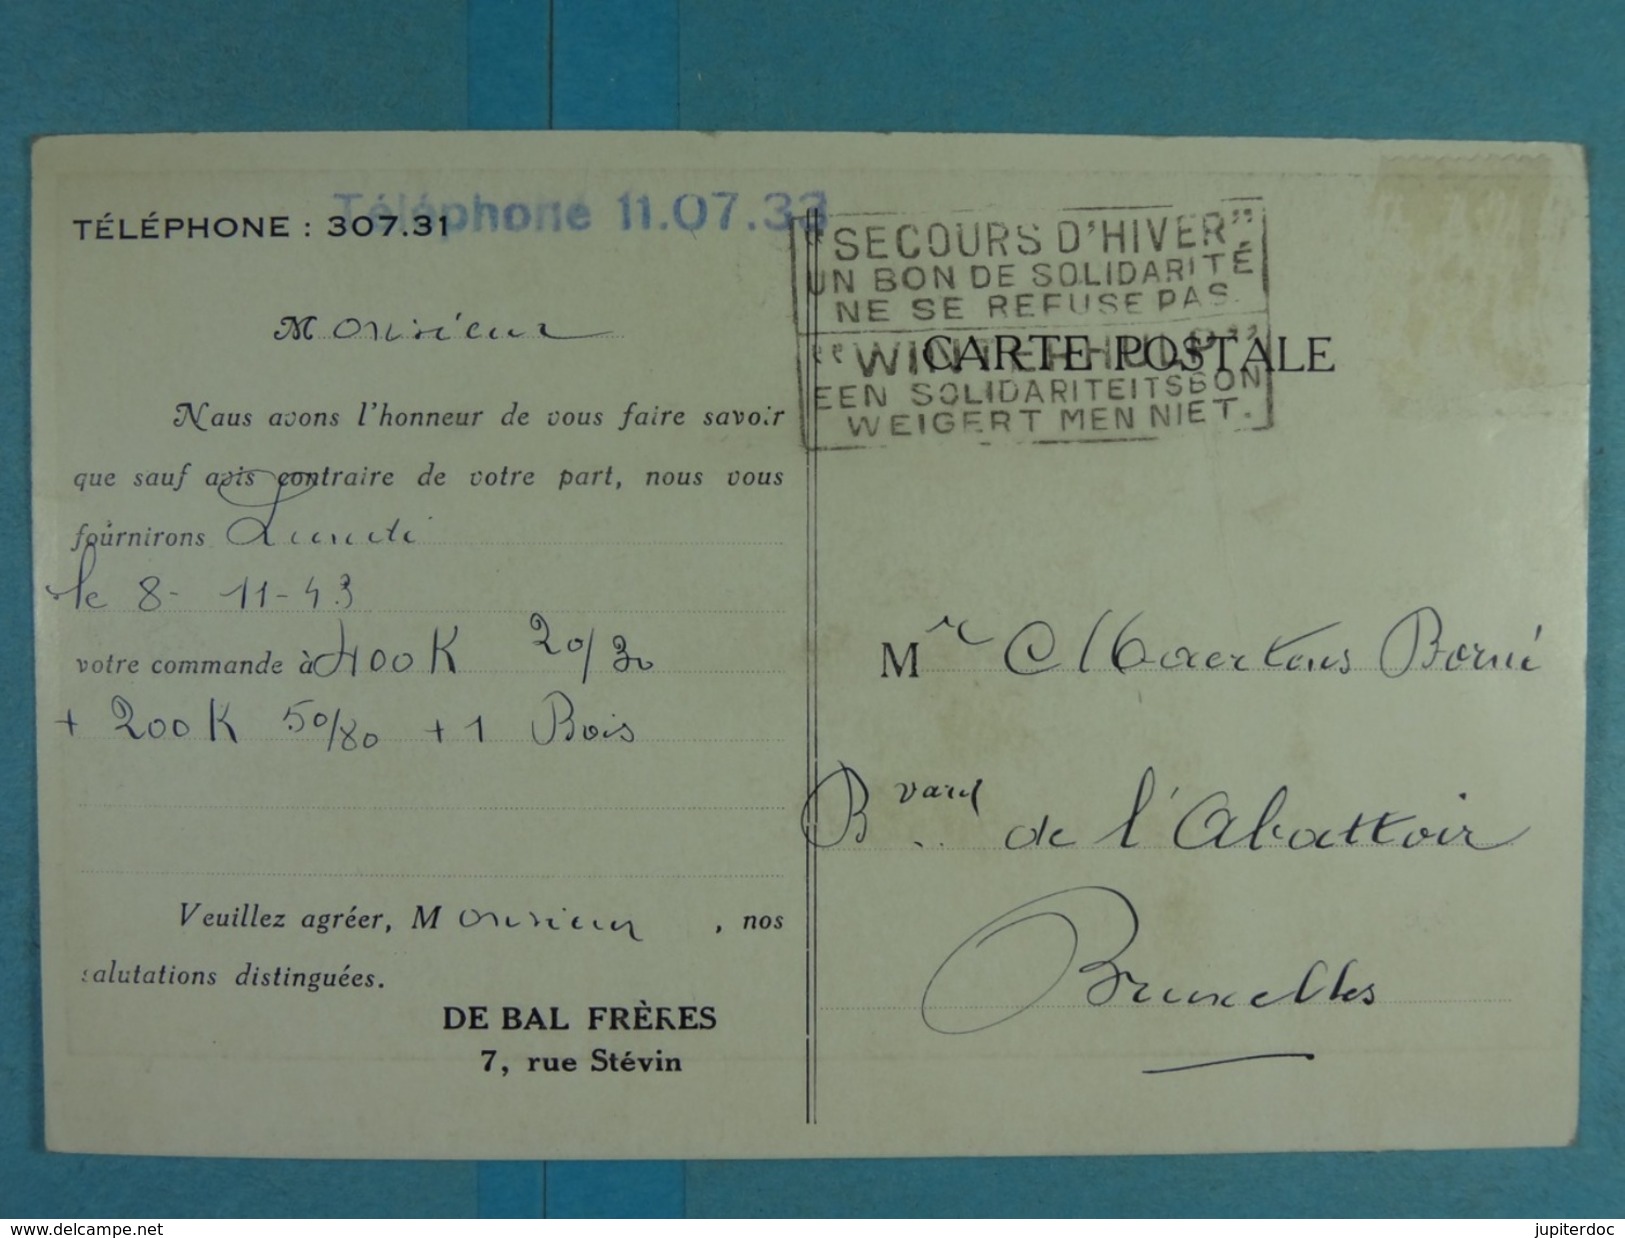 Téléphone 11.07.33
TÉLÉPHONE : 307.31
Monsieur
Naus avons l'honneur de vous faire savoir
que sauf avis contraire de votre part, nous vous
fournirons Lundi
le 8- 11-43
votre commande à 400 K 20/30
+ 200 K 50/80 + 1 Bois
Veuillez agréer, Monsieur , nos
salutations distinguées.
DE BAL FRÈRES
7, rue Stévin
"SECOURS D'HIVER"
UN BON DE SOLIDARITÉ
NE SE REFUSE PAS.
"WINTERHULP"
EEN SOLIDARITEITSBON
WEIGERT MEN NIET.
CARTE POSTALE
Mr Maertens
Bvard de l'Abattoir
Bruxelles
www.delcampe.net
jupiterdoc